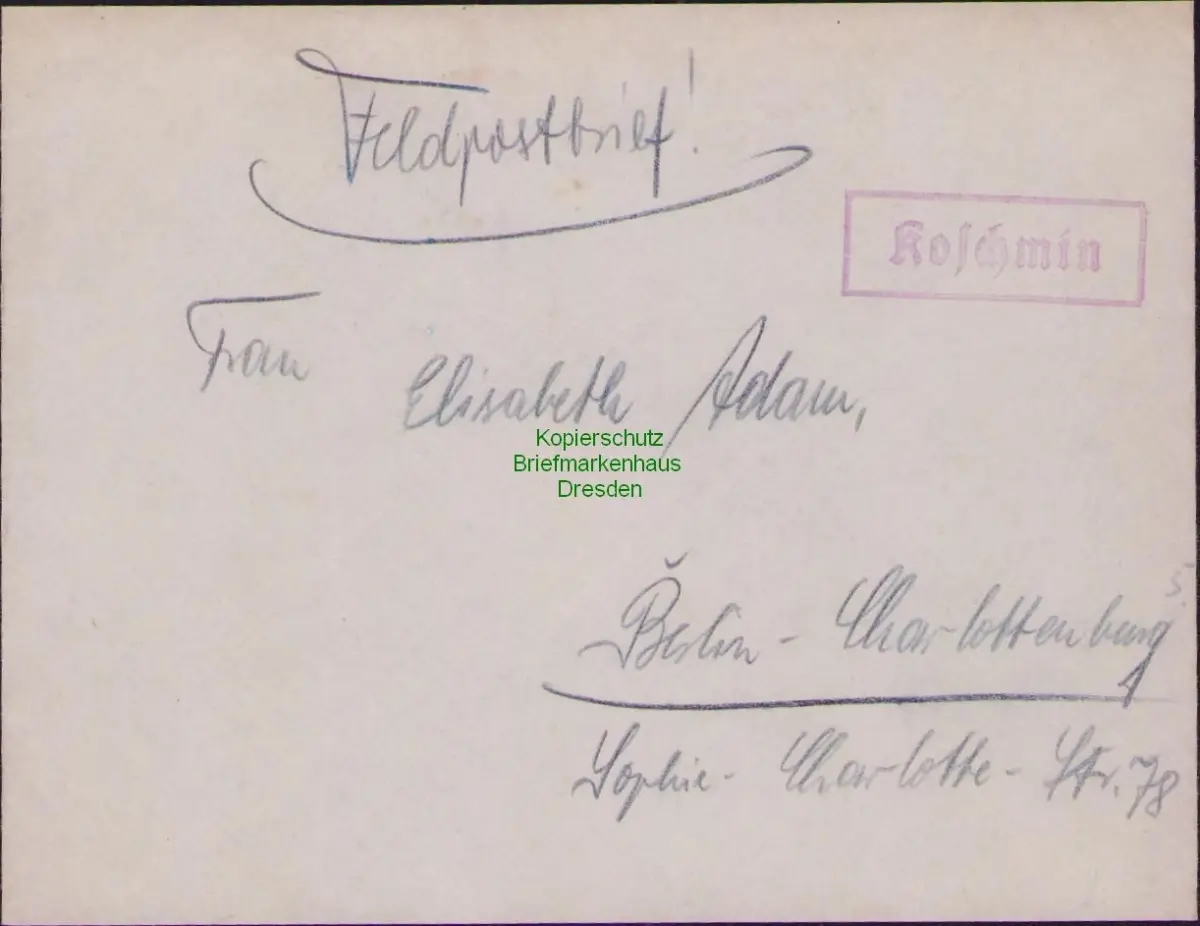 Feldpostbrief!
Koschmin
Frau Elisabeth Adam,
Kopierschutz
Briefmarkenhaus
Dresden
Berlin - Charlottenburg 5.
Sophie - Charlotte - Str. 78